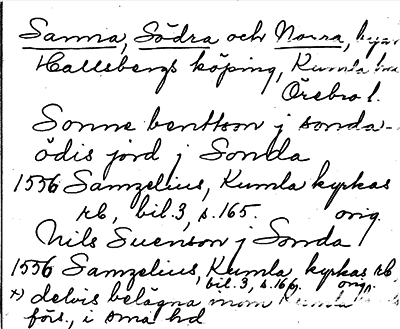 Sanna, Södra och Norra, byar
Hallsbergs köping, Kumla
Örebro l.
Sonne benttson j sonda-
ödis jord j Sonda
1556 Samzelius, Kumla kyrkas
rb, bil.3, s.165. orig.
Nils Suenson j Sonda
1556 Samzelius, Kumla kyrkas rb,
bil.3, s.169. orig.
x) delvis belägna inom Kumla
förs., i små hd